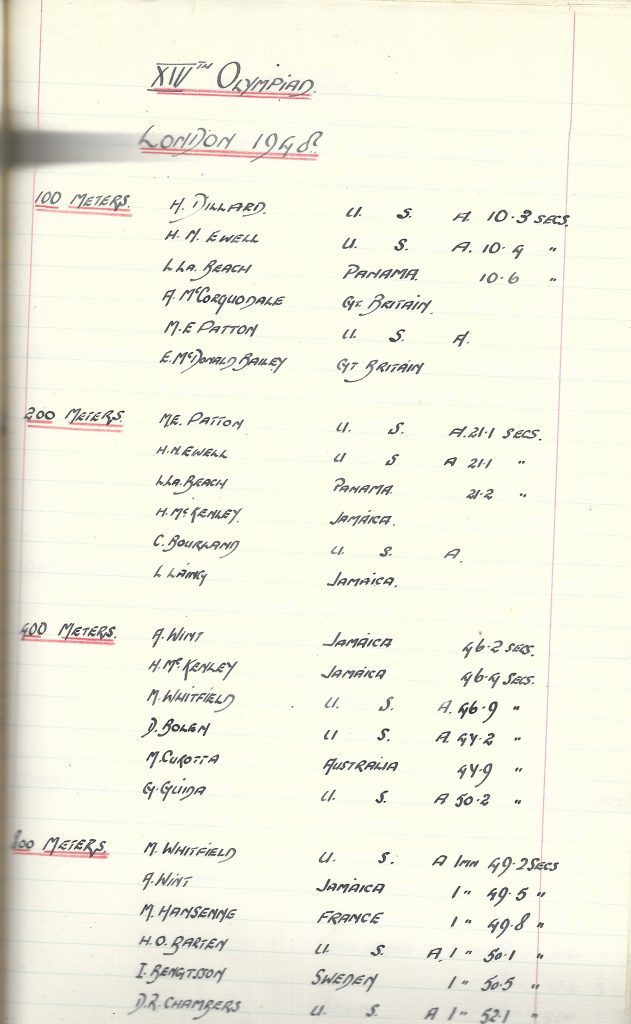 XIVTH OLYMPIAD.
LONDON 1948.
100 METERS. H. DILLARD. U. S. A. 10.3 SECS.
H. N. EWELL U. S. A. 10.4 "
L. LA. BEACH PANAMA. 10.6 "
A. McCORQUODALE GT. BRITAIN.
M. E PATTON U. S. A.
E. McDONALD BAILEY GT BRITAIN
200 METERS. M.E. PATTON U. S. A. 21.1 SECS.
H. N. EWELL U S A 21.1 "
L. LA. BEACH PANAMA. 21.2 "
H. McKENLEY. JAMAICA.
C. BOURLAND U. S. A.
L LAING JAMAICA.
400 METERS. A. WINT JAMAICA 46.2 SECS.
H. McKENLEY JAMAICA 46.4 SECS.
M. WHITFIELD U. S. A. 46.9 "
D. BOLEN U S. A. 47.2 "
M. CUROTTA AUSTRALIA 47.9 "
G. GUIDA U. S. A 50.2 "
800 METERS. M. WHITFIELD U. S. A 1MN 49.2 SECS
A. WINT JAMAICA 1 " 49.5 "
M. HANSENNE FRANCE 1 " 49.8 "
H. O. BARTEN U. S. A. 1 " 50.1 "
I. BENGTSSON SWEDEN 1 " 50.5 "
D.R. CHAMBERS U. S. A 1 " 52.1 "